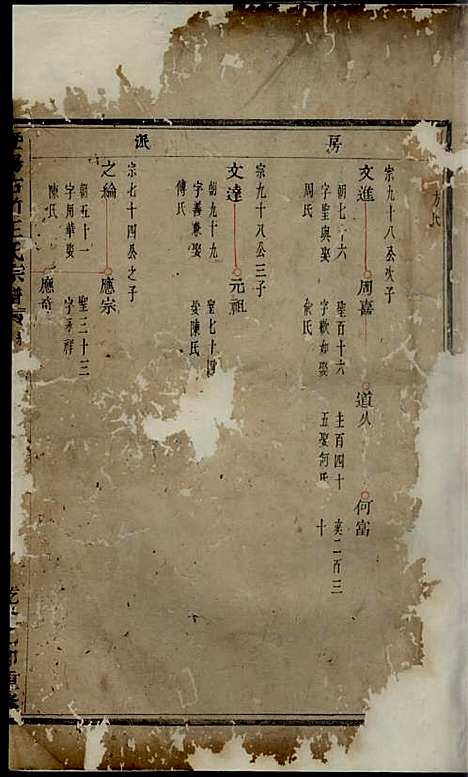 房
派
方氏
宗九十八公次子
文進
朝七　六
字聖與娶
周氏
周嘉
聖百十六
字歡如娶
俞氏
道久
主百四十
五娶何氏
何富
奕二百三
十
宗九十八公三子
文達
朝九十九
字善兼娶
傅氏
元祖
聖七十四
娶陳氏
宗七十四公之子
之綸
朝五十一
字用華娶
陳氏
應宗
聖三十三
字孝祥
應奇
王氏宗譜